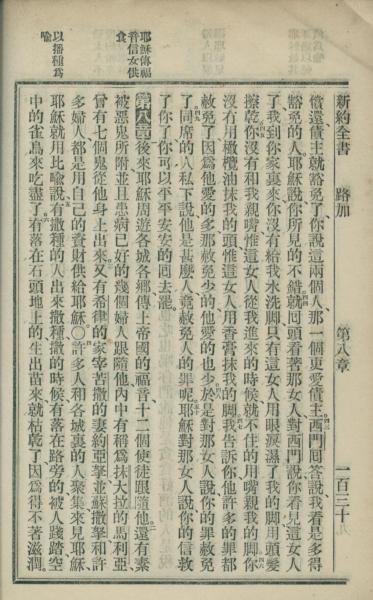 新約全書 路加 第八章 一百三十九
償還債主就豁免了、你說這兩個人、那一個更愛債主西門回答說、我看是多得
豁免的人、耶穌說你所見的不錯就回頭看著那女人、對西門說、你看見這女人
了我到你家裏來你沒有給我水洗脚、只有這女人用眼淚濕了我的脚用頭髮
擦乾你沒有和我親嘴惟這女人從我進來的時候就不住的用嘴親我的脚你
沒有用橄欖油抹我的頭惟這女人用香膏抹我的脚我告訴你他許多的罪都
赦免了因爲他愛的多、那赦免少的他愛的也少於是對那女人說你的罪赦免
了同席的人私下說、他是甚麼人、竟赦免人的罪呢耶穌對那女人說、你的信救
了你了你可以平平安安的回去罷、
第八章後來耶穌周遊各城各鄉傳上帝國的福音、十二個使徒跟隨他還有素
被惡鬼所附並且患病已好的幾個婦人跟隨他內中有稱爲抹大拉的馬利亞
曾有七個鬼從他身上出來又有希律的家宰苦撒的妻約亞拏並蘇撒拏和許
多婦人、都是用自己的賫財供給耶穌〇許多人和各城裏的人聚集來見耶穌、
耶穌就用比喻說、有撒種的人出來撒種、撒的時候有落在路旁的被人踐踏空
中的雀鳥來吃盡了有落在石頭地上的生出苗來就枯乾了因爲得不著滋潤、
耶穌傳福
音信女供
食
以播種爲
喻